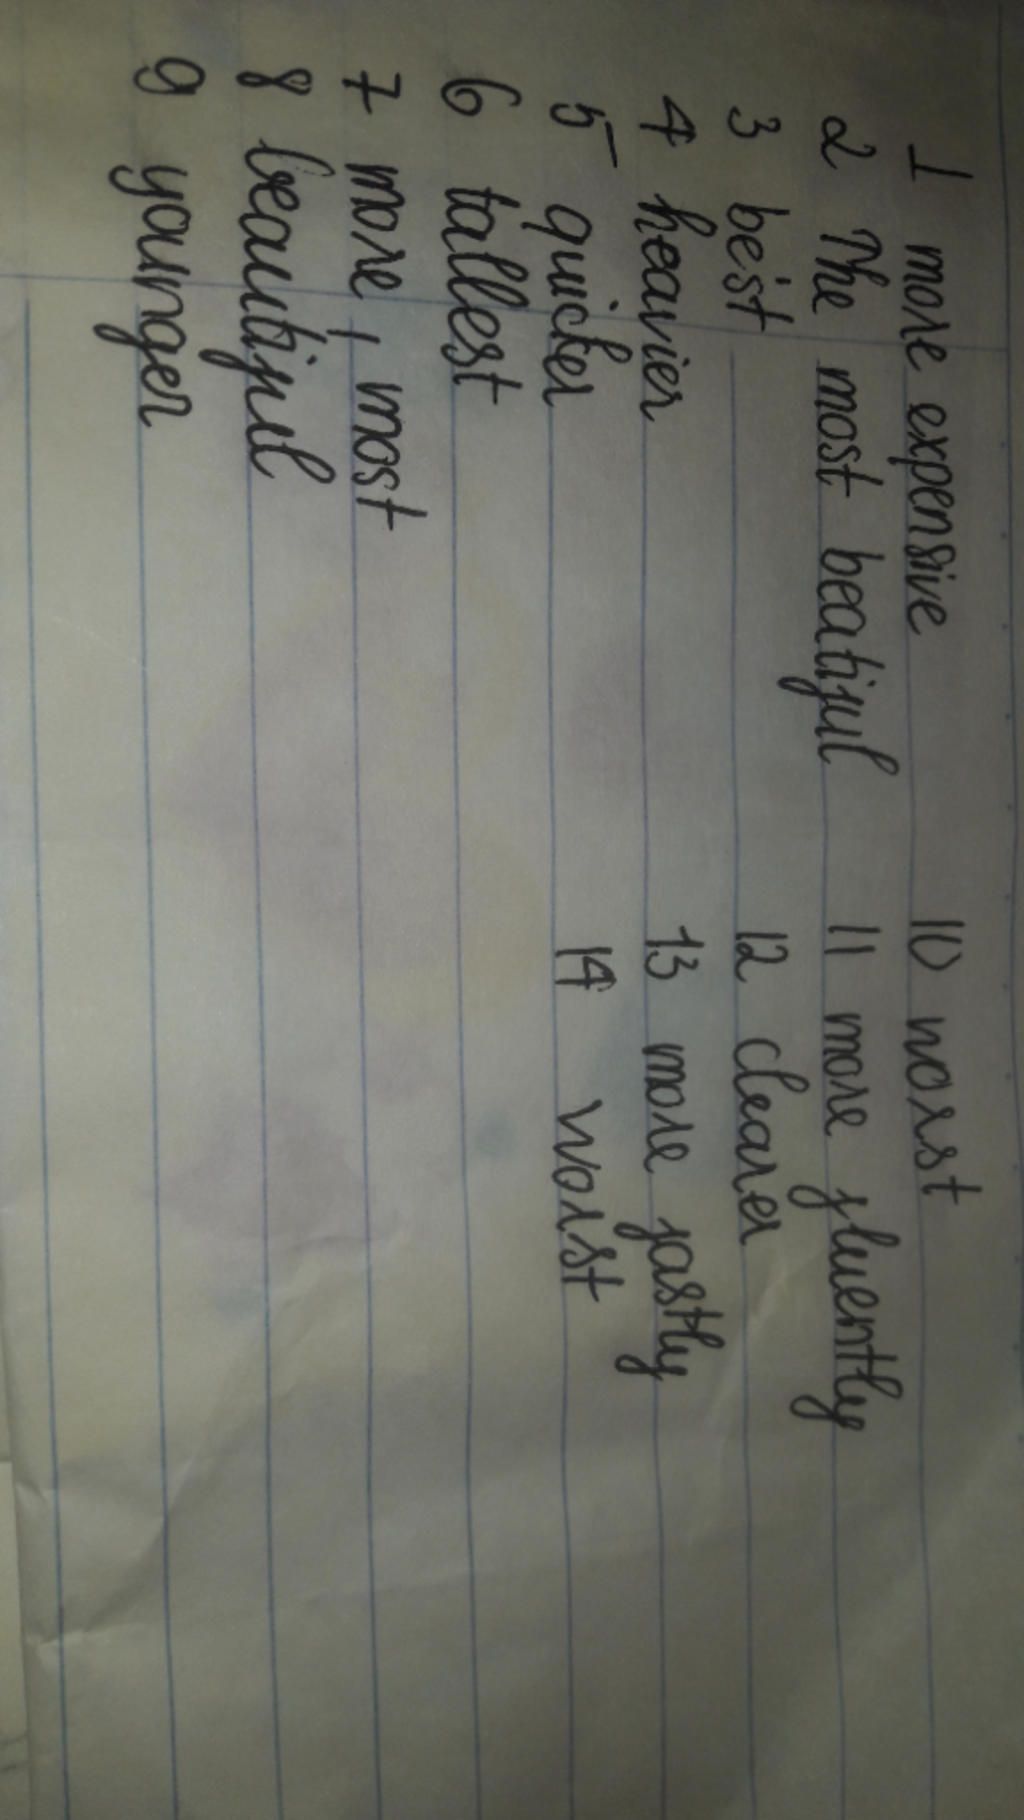 1 more expensive
2 The most beatiful
3 best
4 heavier
5 quicker
6 tallest
7 more, most
8 beautiful
9 younger
10 worst
11 more fluently
12 clearer
13 more fastly
14 worst